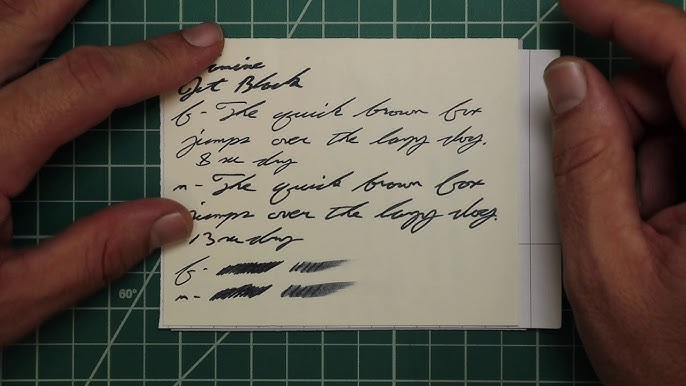 Jet Black
f - The quick brown fox
jumps over the lazy dog.
8 sec dry
m - The quick brown fox
jumps over the lazy dog.
13 sec dry
f -
m -
60°